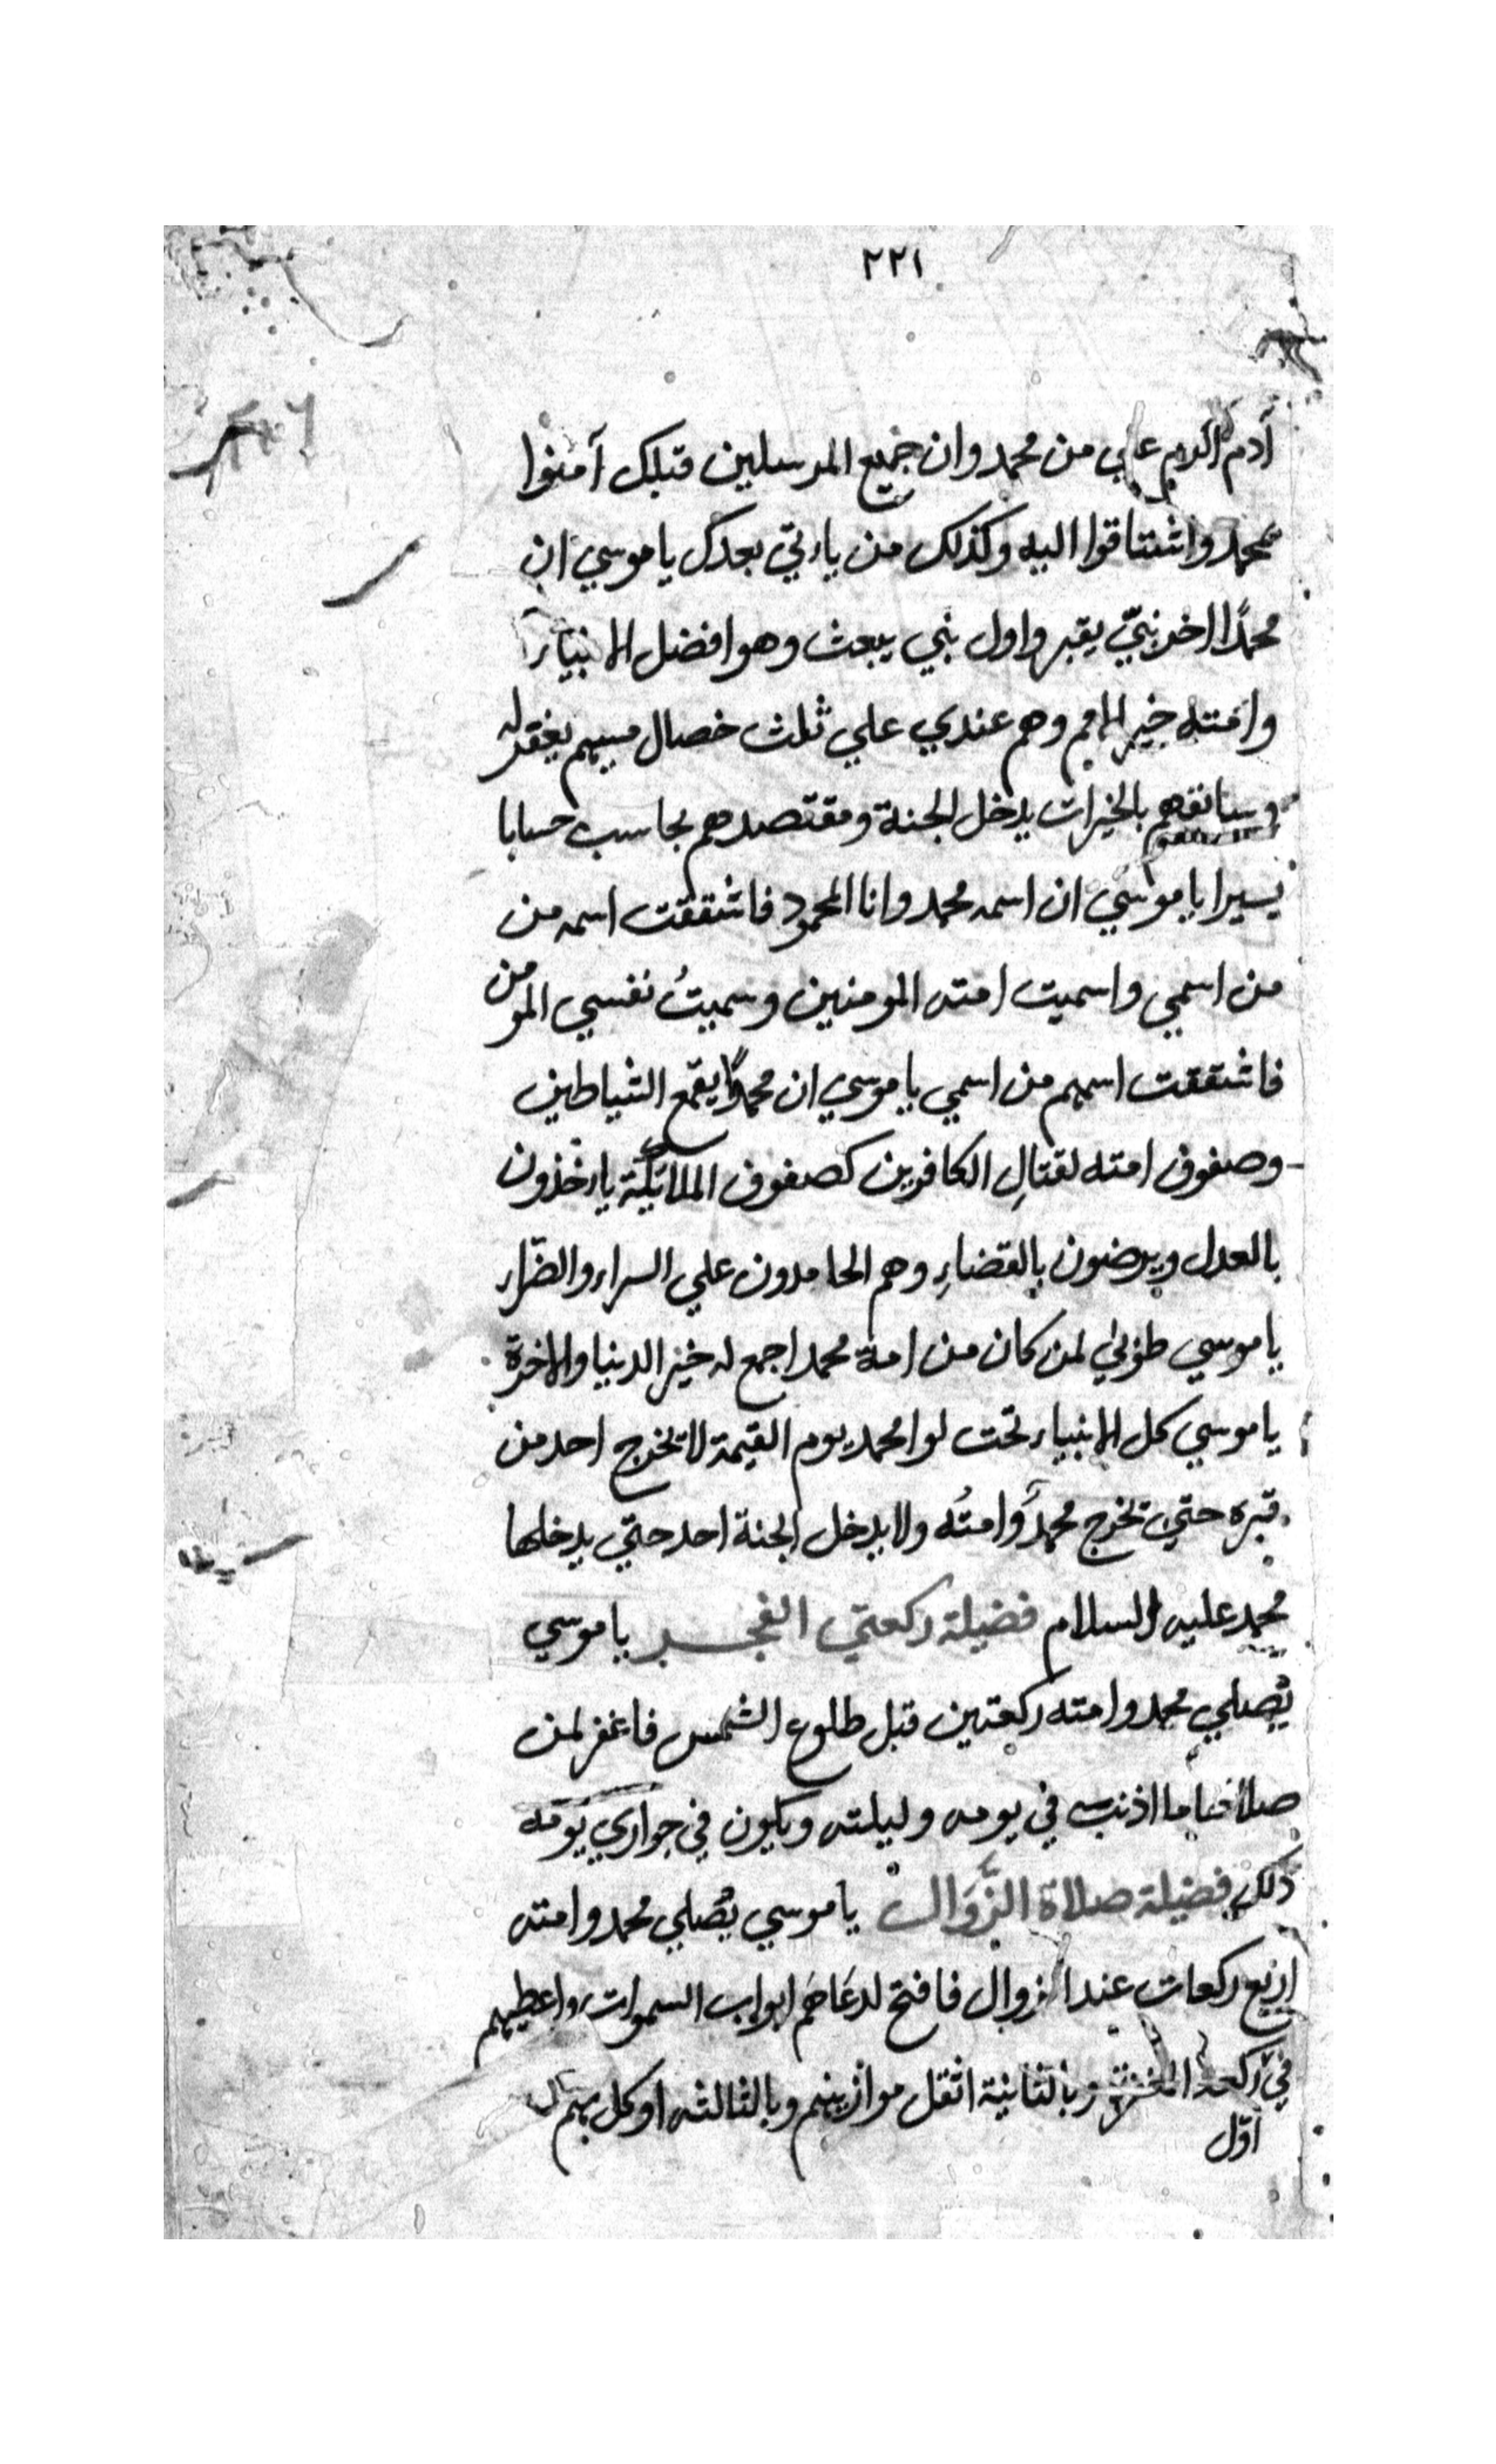 ٢٢١
آدم اكرم علي من محمد وان جميع المرسلين قبلك آمنوا
بمحمد واشتاقوا اليه وكذلك من ياتي بعدك يا موسي ان
محمدًا اخر نبيّ يقبر واول نبي يبعث وهو افضل الانبياء
وامته خير الامم وهم عندي علي ثلث خصال مسيهم يغفر له
وسابقهم بالخيرات يدخل الجنة ومقتصدهم يحاسب حسابا
يسيرا يا موسي ان اسمه محمد وانا المحمود فاشتققت اسمه من
من اسمي واسميت امته المومنين وسميتُ نفسي المومن
فاشتققت اسمهم من اسمي يا موسي ان محمدًا يقمع الشياطين
وصفوف امته لقتالِ الكافرين كصفوف الملائكة ياخذون
بالعدل ويرضون بالقضاءِ وهم الحامدون علي السراء والضّراء
يا موسي طوبي لمن كان من امة محمد اجمع له خير الدنيا والاخرة
يا موسي كل الانبياء تحت لوا محمد يوم القيمة لا تخرج احد من
قبره حتي تخرج محمدٌ وامتُه ولا يدخل الجنة احد حتي يدخلها
محمد عليه السلام فضيلة ركعتي الفجر يا موسي
يُصلي محمد وامته ركعتين قبل طلوع الشمس فاغفر لمن
صلاهما ما اذنب في يومه وليلته ويكون في جواري يَومَه
ذلك فضيلة صلاة الزَّوَال يا موسي يُصلي محمد وامته
اربع ركعات عند الزوال فافتح لدعاهم ابواب السموات واعطيهم
في ركعة المغفرة وبالثانية اثقل موازينهم وبالثالثه اوكل بهم
اوّل